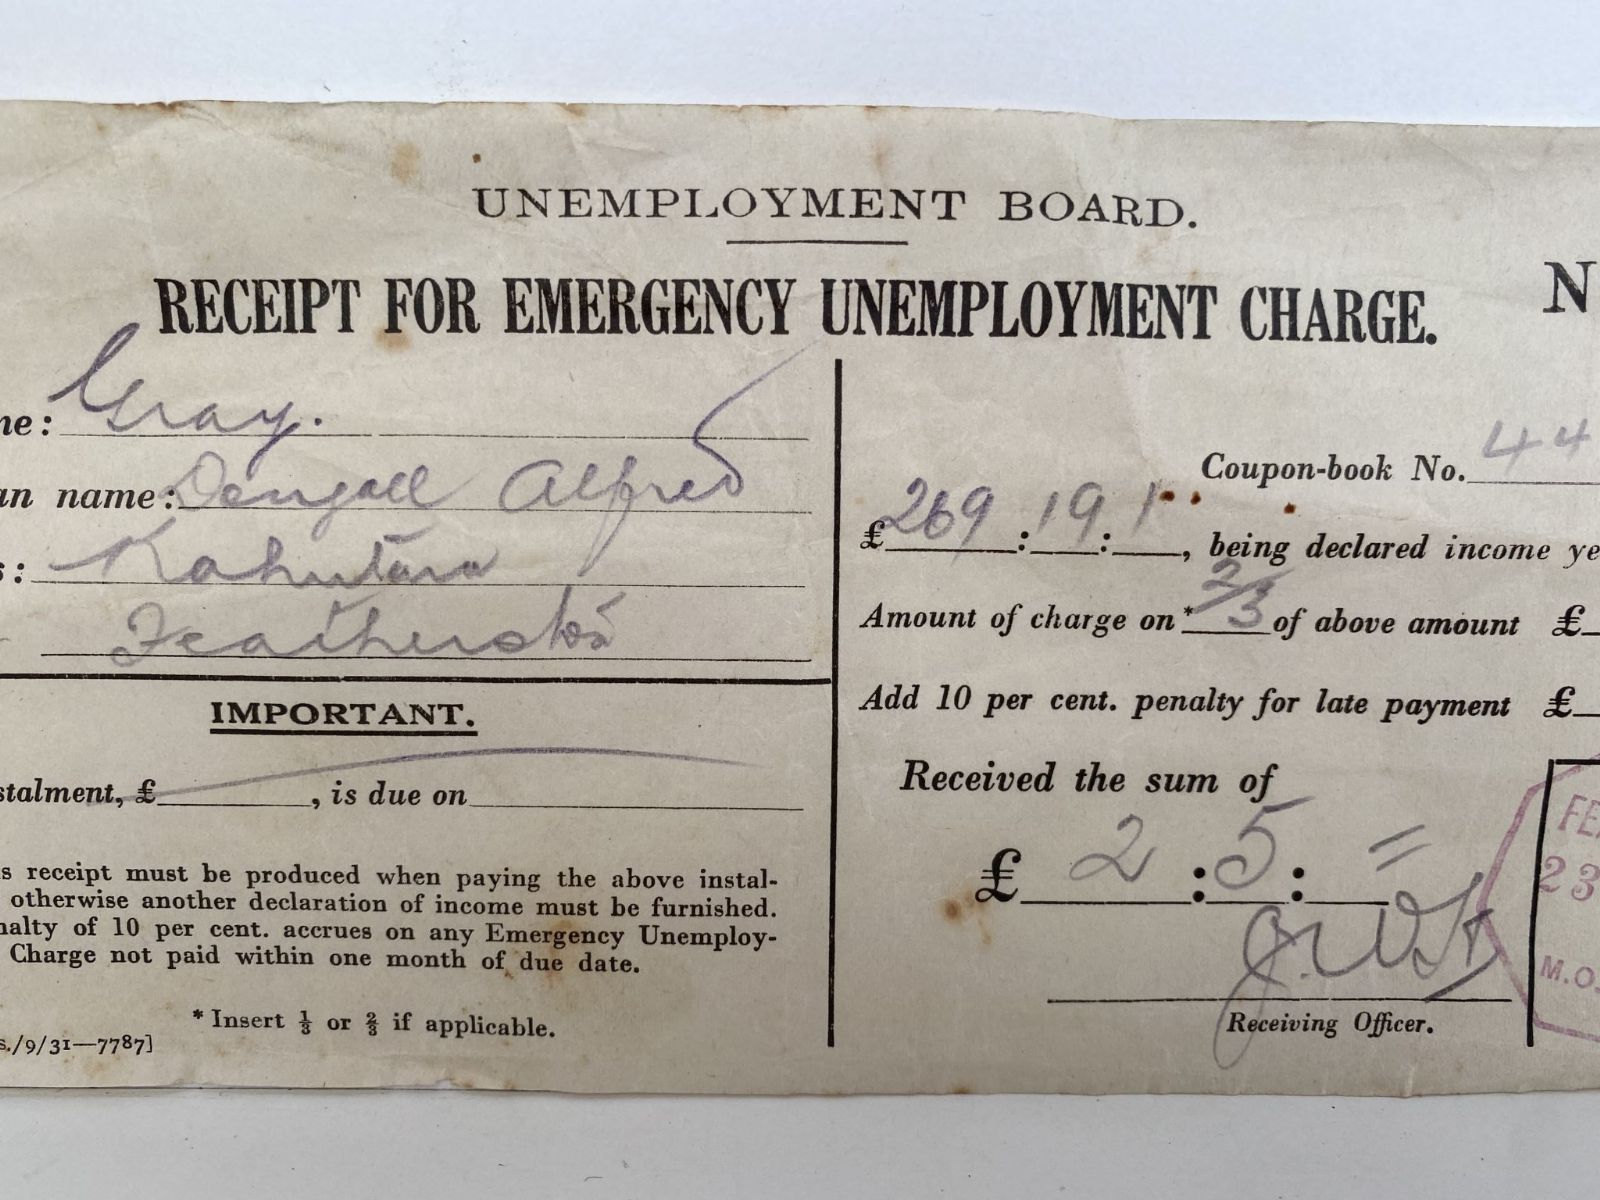 UNEMPLOYMENT BOARD.
RECEIPT FOR EMERGENCY UNEMPLOYMENT CHARGE. N
ne: Gray.
an name: Dengall Alfred
s: Kahutara
Featherston
IMPORTANT.
stalment, £ , is due on
s receipt must be produced when paying the above instal-
otherwise another declaration of income must be furnished.
nalty of 10 per cent. accrues on any Emergency Unemploy-
Charge not paid within one month of due date.
* Insert ⅓ or ⅔ if applicable.
s./9/31—7787]
Coupon-book No. 44
£269 : 19 : 1, being declared income ye
Amount of charge on * 2/3 of above amount £
Add 10 per cent. penalty for late payment £
Received the sum of
£ 2 : 5 : =
Receiving Officer.
FE
23
M.O.